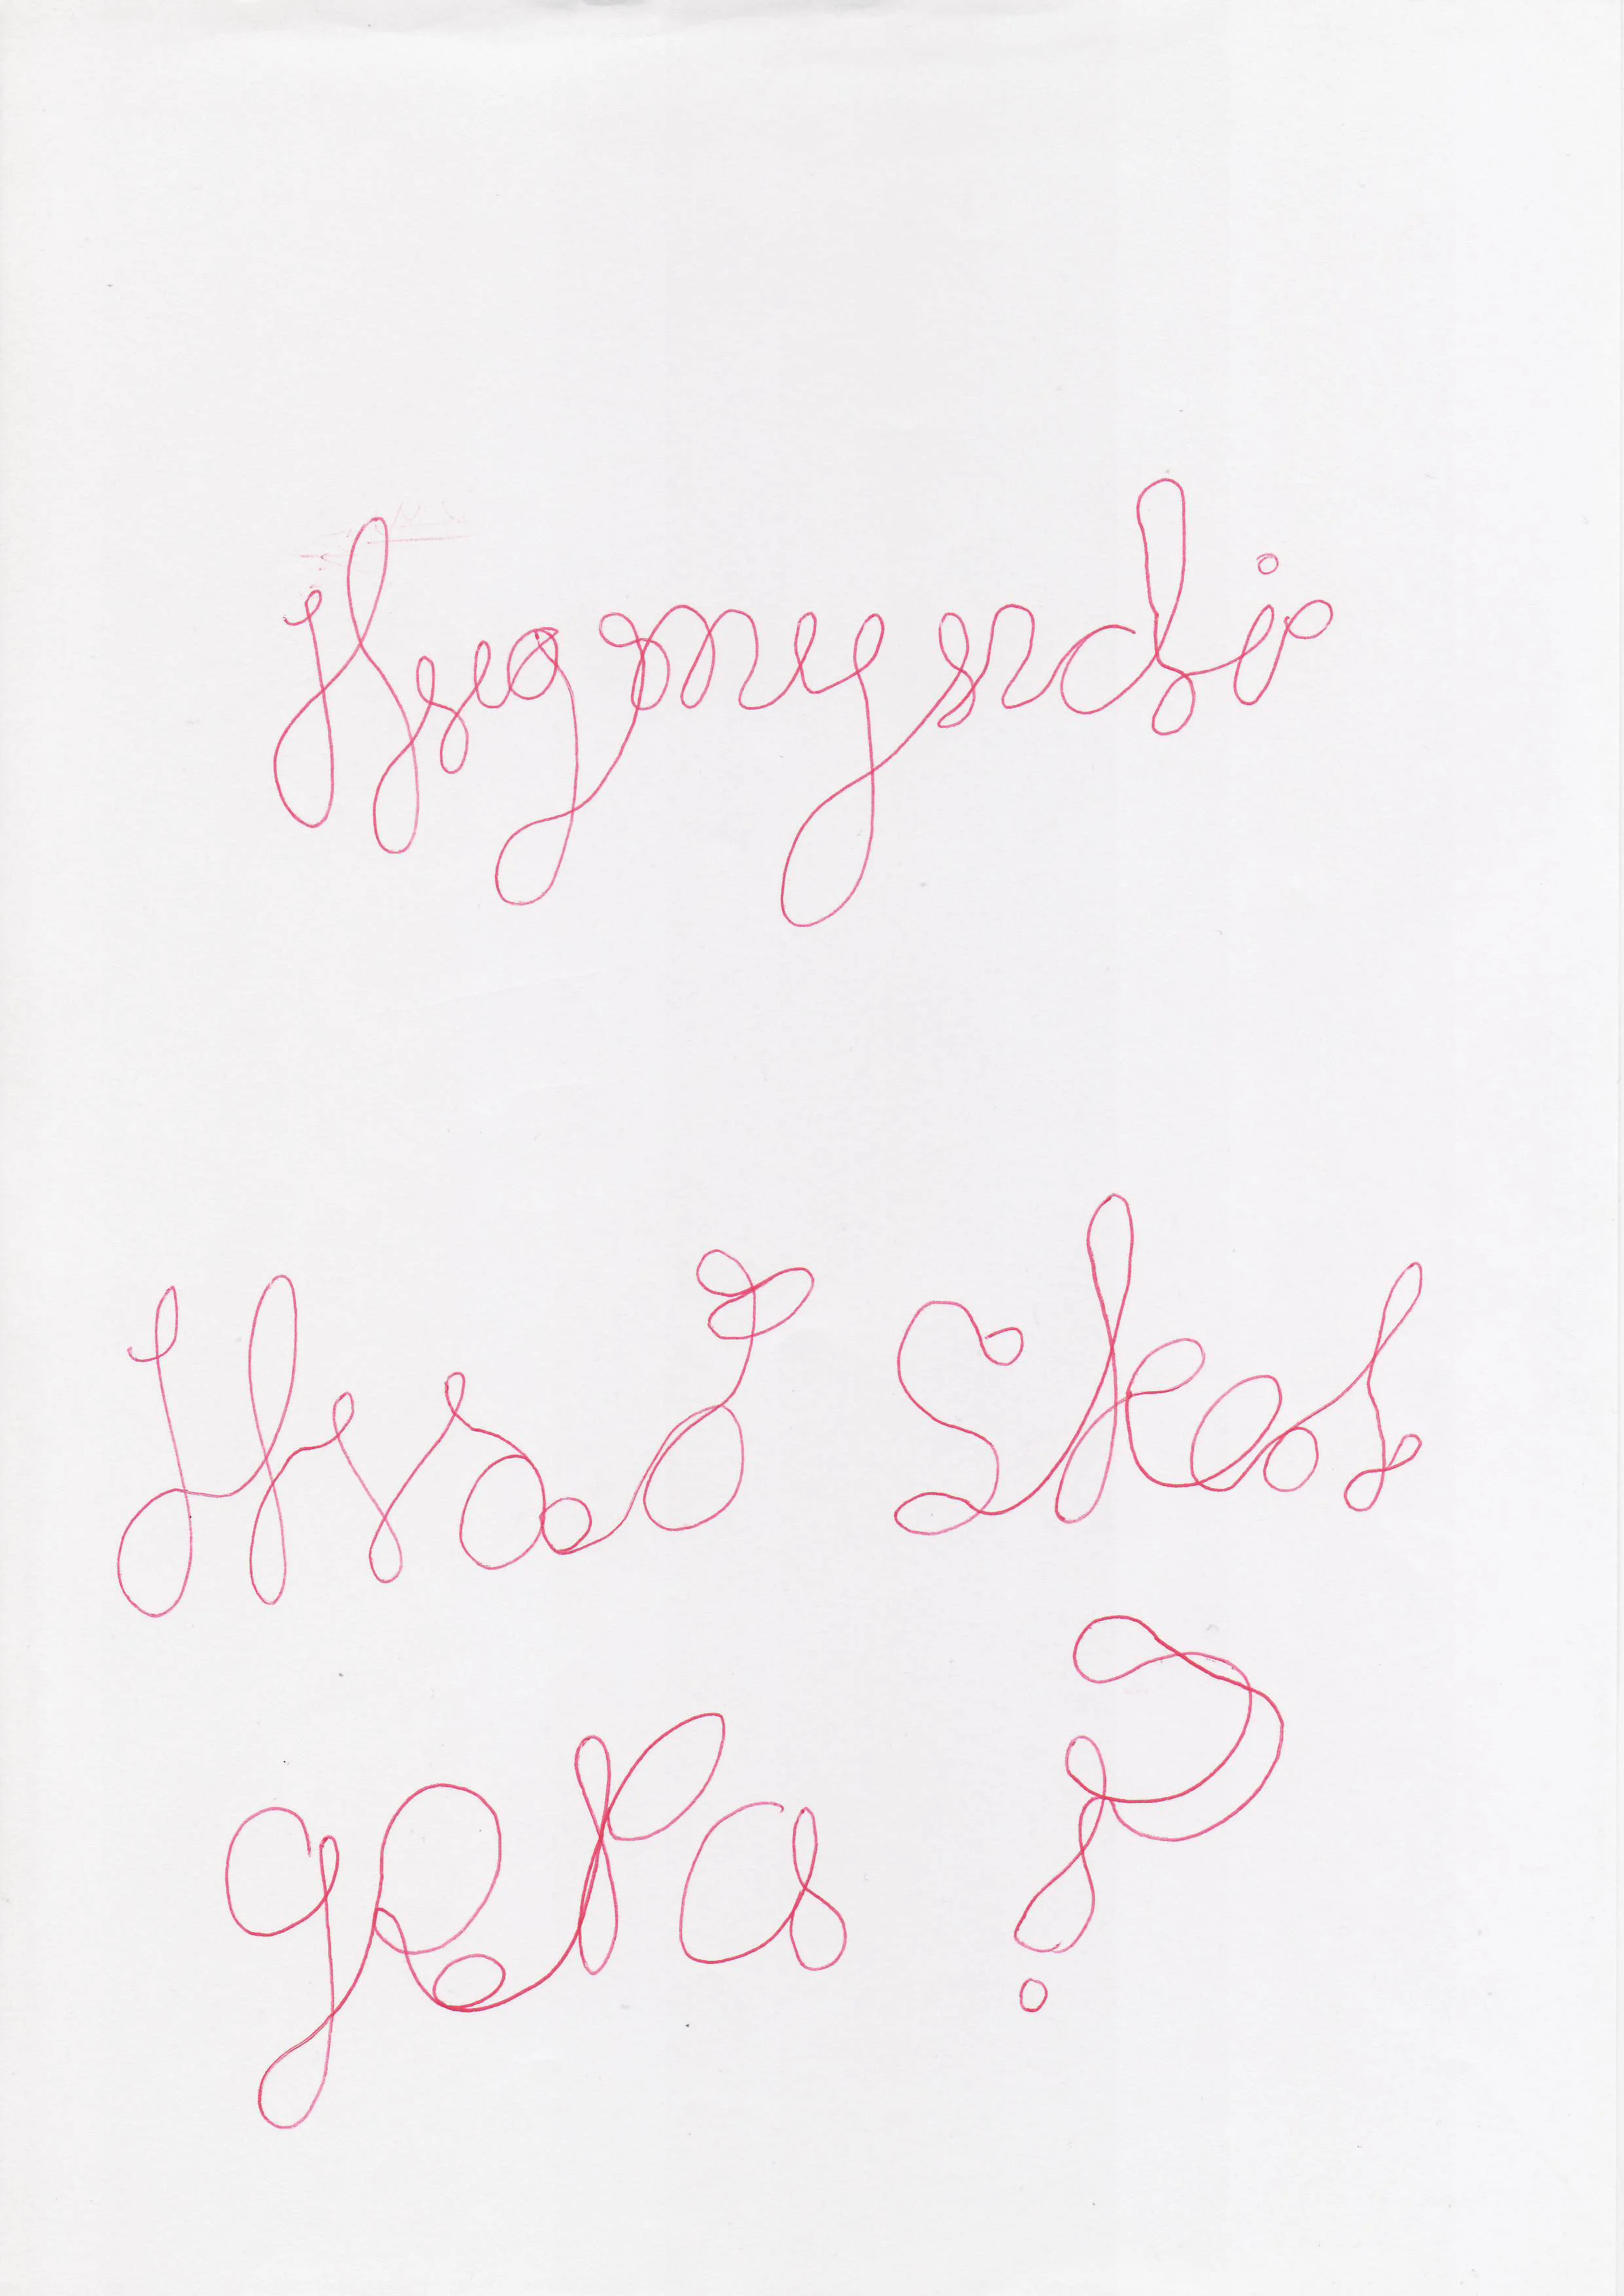 Hugmyndir
Hvað skal
gera?